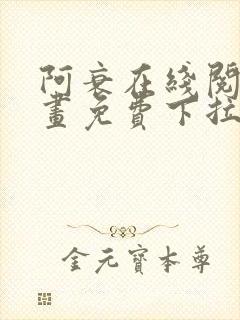 阿衰在线阅
畫免費下拉
金元寶本尊